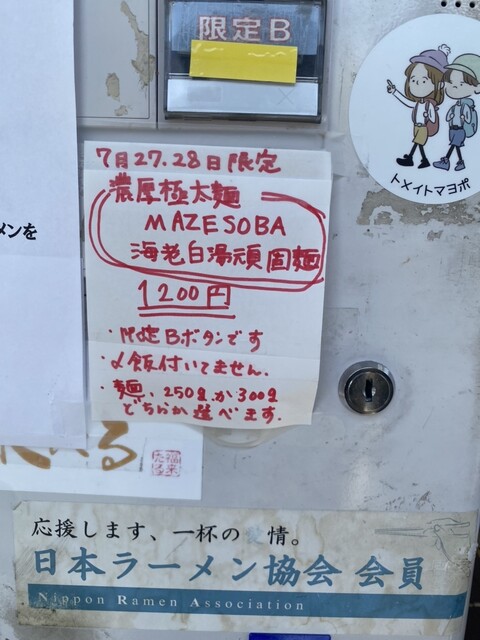 限定B
トメイトマヨポ
メンを
7月27.28日限定
濃厚極太麺
MAZESOBA
海老白湯頑固麺
1200円
・限定Bボタンです
・〆飯付いてません.
・麺、250gか300g
どちらか選べます.
る
応援します、一杯の愛情。
日本ラーメン協会 会員
Nippon Ramen Association